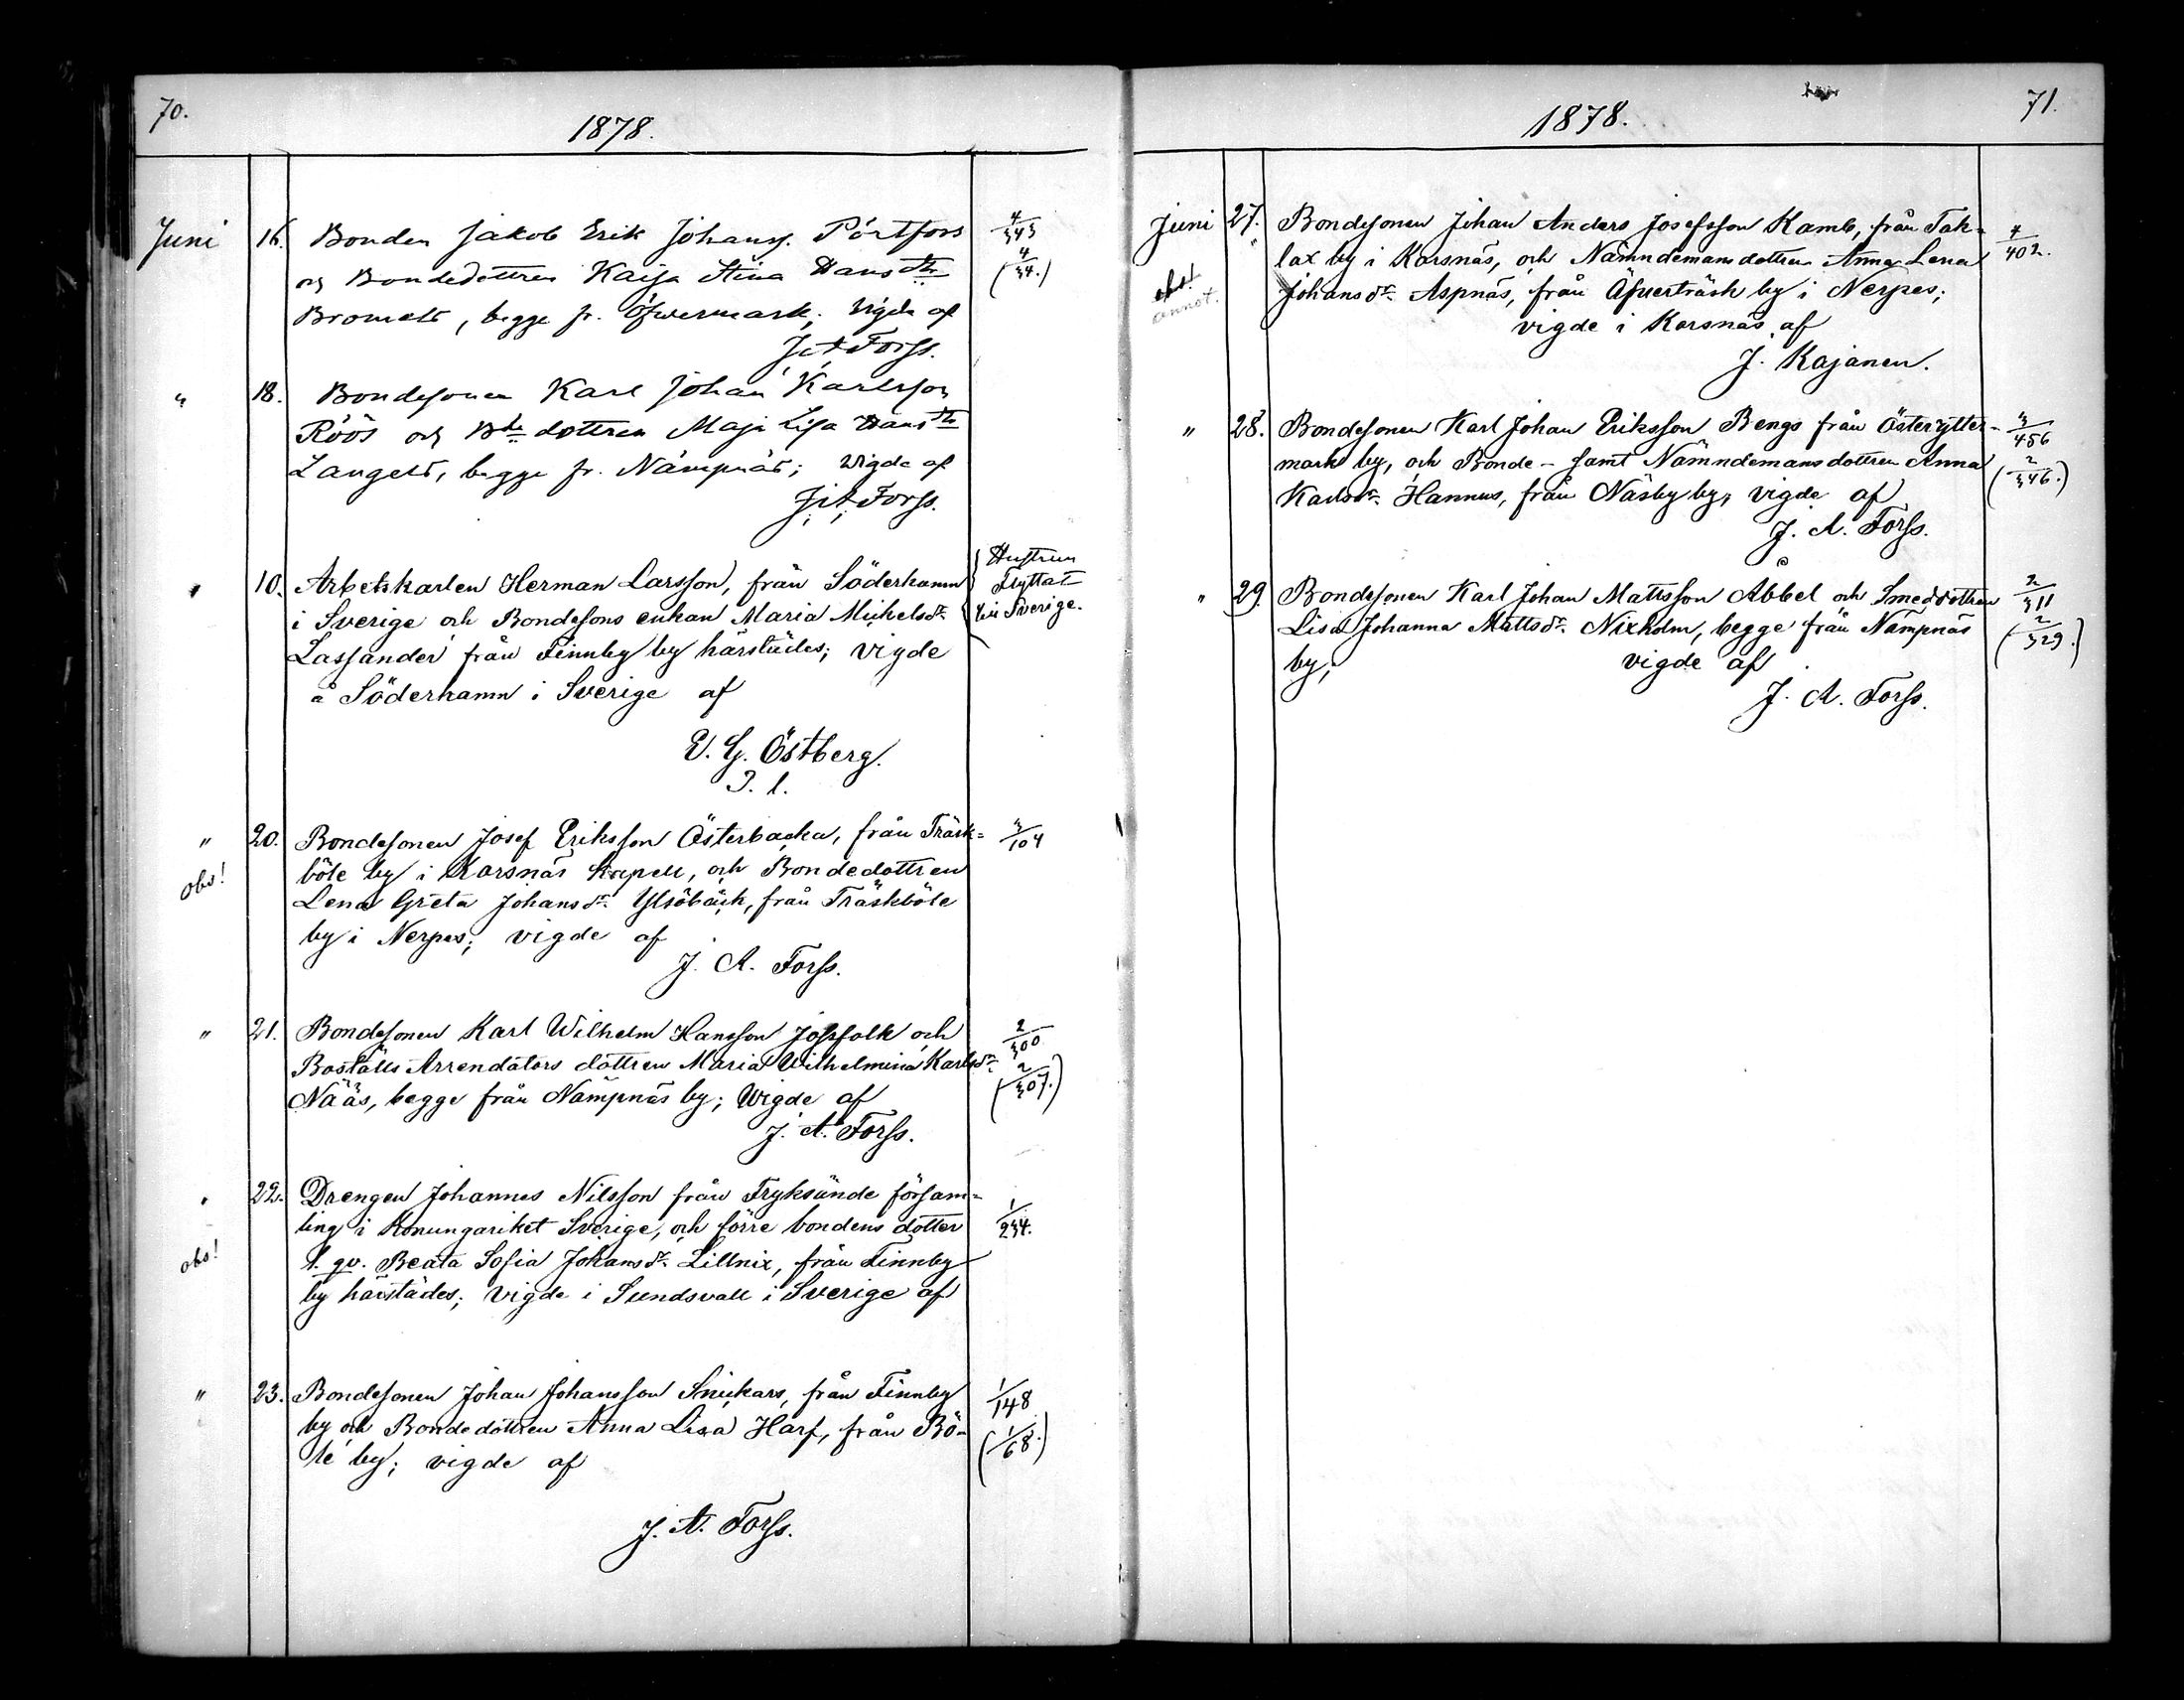 70.
1878.
Juni 16. Bonden Jakob Erik Johanss. Pörtfors 4/343
och Bondedottren Kaisa Stina Hansdtr (4/34.)
Bromels, begge fr. Öfvermark; vigde af
J. A. Forss.
" 18. Bondesonen Karl Johan Karlsson
Röös och Bde dottren Maja Lisa Hansdtr
Langels, begge fr. Nämpnäs; vigde af
J. A. Forss.
" 10. Arbetskarlen Herman Larsson, från Söderhamn { Hustrun
i Sverige och Bondesons enkan Maria Mickelsdr. Flyttat
Lassander från Finnby by härstädes; vigde till Sverige.
å Söderhamn i Sverige af
E. G. Östberg.
P. l.
" 20. Bondesonen Josef Eriksson Österbacka, från Träsk= 3/104
obs! böle by i Korsnäs kapell, och Bondedottren
Lena Greta Johansdr. Ylsöbäck, från Träskböle
by i Nerpes; vigde af
J. A. Forss.
" 21. Bondesonen Karl Wilhelm Hansson Jossfolk och 2/300
Boställs Arrendators dottren Maria Wilhelmina Karlsdr. (2/307.)
Nääs, begge från Nämpnäs by; Wigde af
J. A. Forss.
" 22. Drengen Johannes Nilsson från Fryksände församl=
ling i Konungariket Sverige, och förre bondens dotter 1/234.
obs! l. qv. Beata Sofia Johansdr. Lillnix, från Finnby
by härstädes; vigde i Sundsvall i Sverige af
" 23. Bondesonen Johan Johansson Snickars, från Finnby 1/148
by och Bondedottren Anna Lisa Harf, från Bö= (1/68.)
le by; vigde af
J. A. Forss.
71.
1878.
Juni 27. Bondesonen Johan Anders Josefsson Kamb, från Tak= 4/402.
lax by i Korsnäs, och Nämndemansdottren Anna Lena
obs! Johansdr. Aspnäs, från Äfverträsk by i Nerpes;
annot. vigde i Korsnäs af
J. Kajanen.
" 28. Bondesonen Karl Johan Eriksson Bengs från Österytter= 3/456
mark by, och Bonde- samt Nämndemansdottren Anna (2/346.)
Karlsdr. Hannus, från Näsby by, vigde af
J. A. Forss.
" 29. Bondesonen Karl Johan Mattsson Åbbel och Smeddottren 2/311
Lisa Johanna Mattsdr. Nixholm, begge från Nämpnäs (2/329.)
by; vigde af
J. A. Forss.